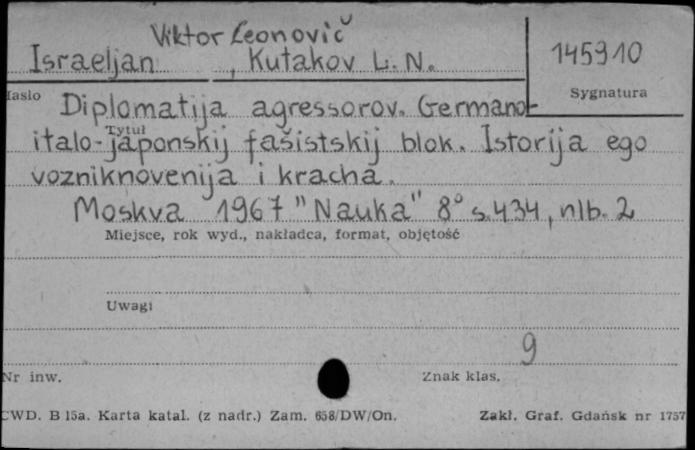 Viktor Leonovič
Israeljan, Kutakov L. N.
145910
Sygnatura
Hasło
Diplomatija agressorov. Germano-
Tytuł
italo-japonskij fašistskij blok. Istorija ego
vozniknovenija i kracha.
Moskva 1967 "Nauka" 8° s. 434, nlb. 2
Miejsce, rok wyd., nakładca, format, objętość
Uwagi
9
Nr inw.
Znak klas.
CWD. B 15a. Karta katal. (z nadr.) Zam. 658/DW/On.
Zakł. Graf. Gdańsk nr 1757